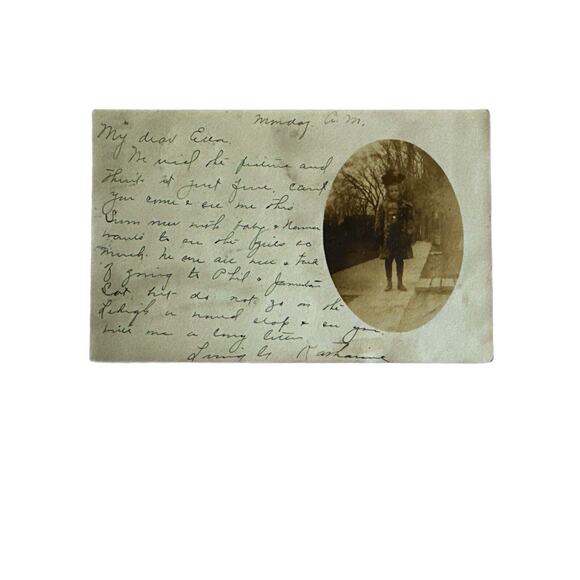 Monday. A.M.
My dear Eva.
We rec'd the picture and
think it just fine, can't
you come & see me this
Sum mer with baby & Norman
wants to see the girls so
much. We are all well & 
of going to Phil &
Sat. but do not go on the
Lehigh a round stop & see you
write me a long letter
Loving ly Katharine